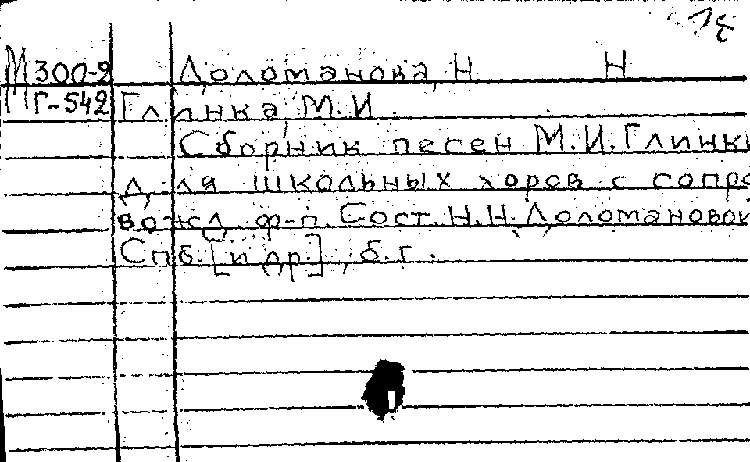 18
М300-2 Доломанова, Н Н
МГ-542 Глинка, М.И.
Сборник песен М.И.Глинки
для школьных хоров с сопро
вожд. ф-п. Сост. Н.Н.Доломановой
Спб. [и др.], б.г.